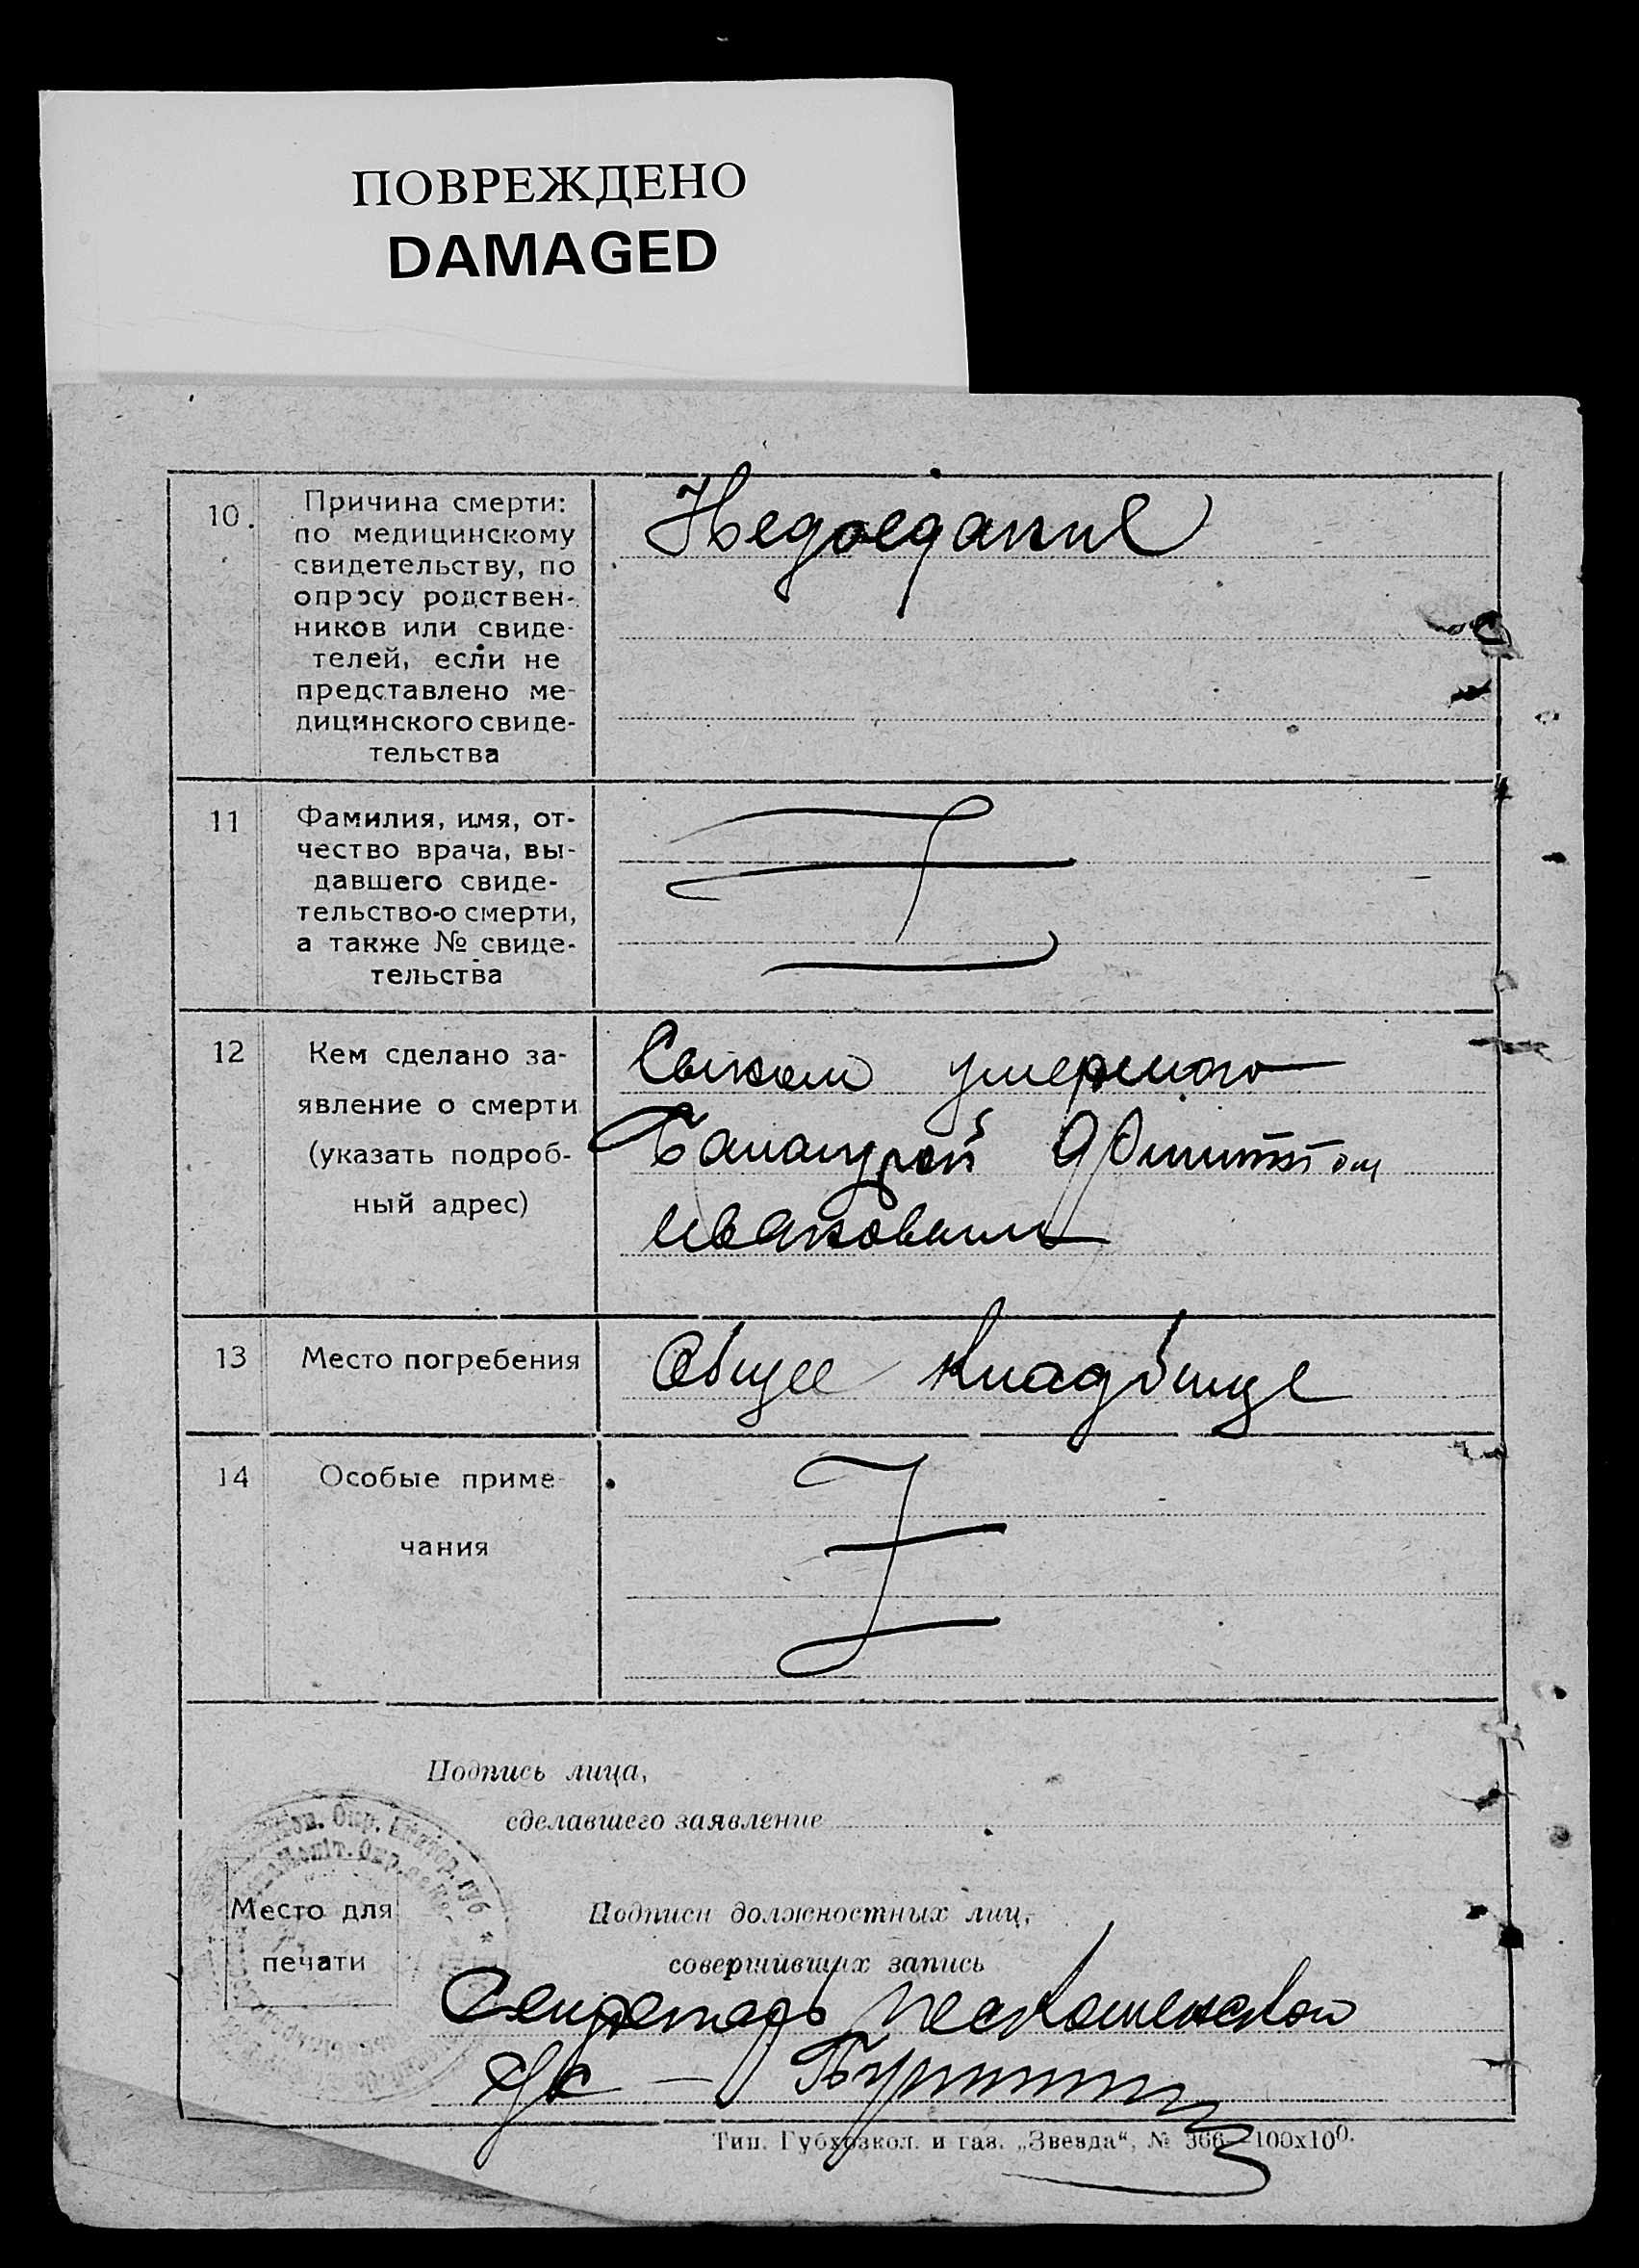 ПОВРЕЖДЕНО
DAMAGED
10.
Причина смерти:
по медицинскому
свидетельству, по
опросу родствен-
ников или свиде-
телей, если не
представлено ме-
дицинского свиде-
тельства
Недоедание
11
Фамилия, имя, от-
чество врача, вы-
давшего свиде-
тельство-о смерти,
а также № свиде-
тельства
12
Кем сделано за-
явление о смерти
(указать подроб-
ный адрес)
Сыном умершого
Ивановым
13
Место погребения
Общее кладбище
14
Особые приме-
чания
Подпись лица,
сделавшего заявление
Место для
печати
Подписи должностных лиц,
совершивших запись
Секретарь
Тип. Губхозкол. и газ. „Звезда“, № 366—100х100.